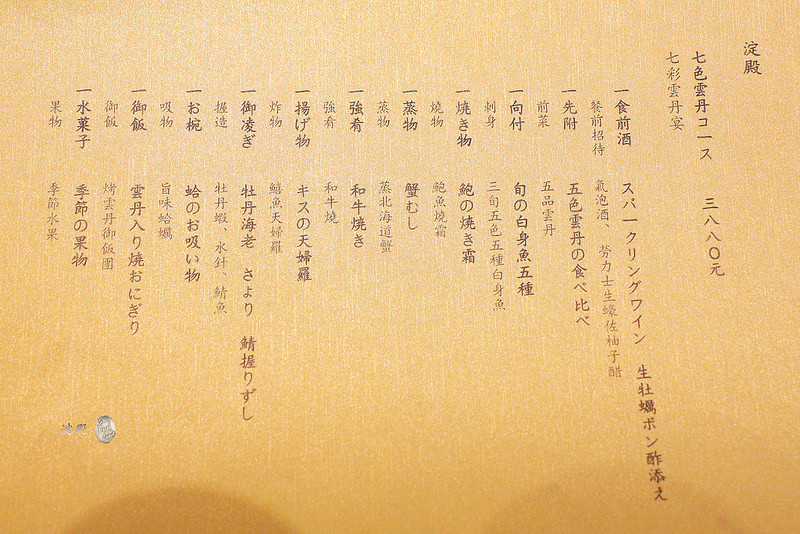 淀殿
七色雲丹コース　三八八〇元
七彩雲丹宴
一食前酒　スパークリングワイン　生牡蠣ポン酢添え
餐前招待　氣泡酒、勞力士生蠔佐柚子醋
一先附　五色雲丹の食べ比べ
前菜　五品雲丹
一向付　旬の白身魚五種
刺身　三旬五色五種白身魚
一焼き物　鮑の焼き霜
燒物　鮑魚燒霜
一蒸物　蟹むし
蒸物　蒸北海道蟹
一強肴　和牛焼き
強肴　和牛燒
一揚げ物　キスの天婦羅
炸物　鱚魚天婦羅
一御凌ぎ　牡丹海老　さより　鯖握りずし
握造　牡丹蝦、水針、鯖魚
一お椀　蛤のお吸い物
吸物　旨味蛤蠣
一御飯　雲丹入り焼おにぎり
御飯　烤雲丹御飯團
一水菓子　季節の果物
果物　季節水果
淀殿